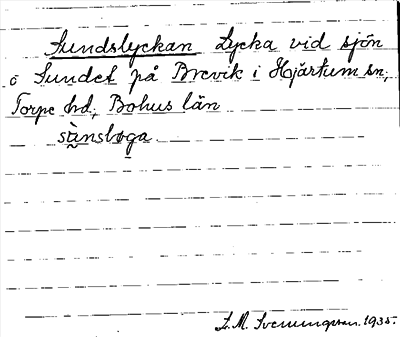 Sundslyckan Lycka vid sjön
o Sundet på Brevik i Hjärtum sn,
Torpe hd, Bohus län
sùnsløga
S. M. Svenungsson. 1935.